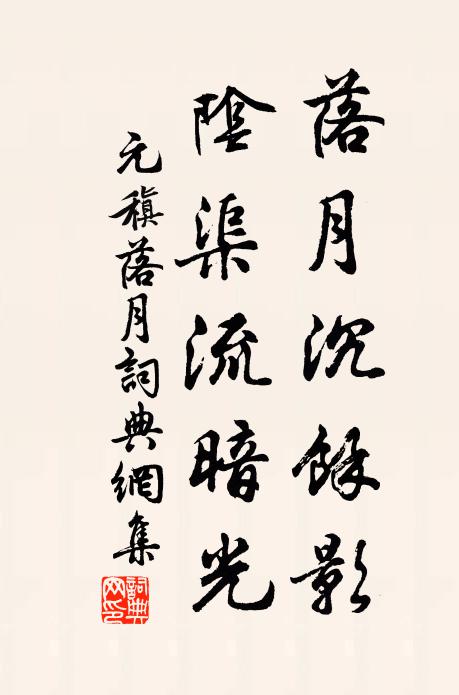 落月沉餘影
陰渠流暗光
元稹落月詞典網集
詞典
网印